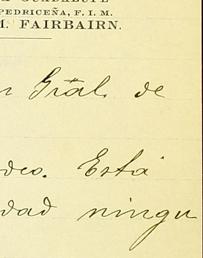 PEDRICEÑA, F. I. M.
FAIRBAIRN.
Gral. de
deo. Está
dad ningu